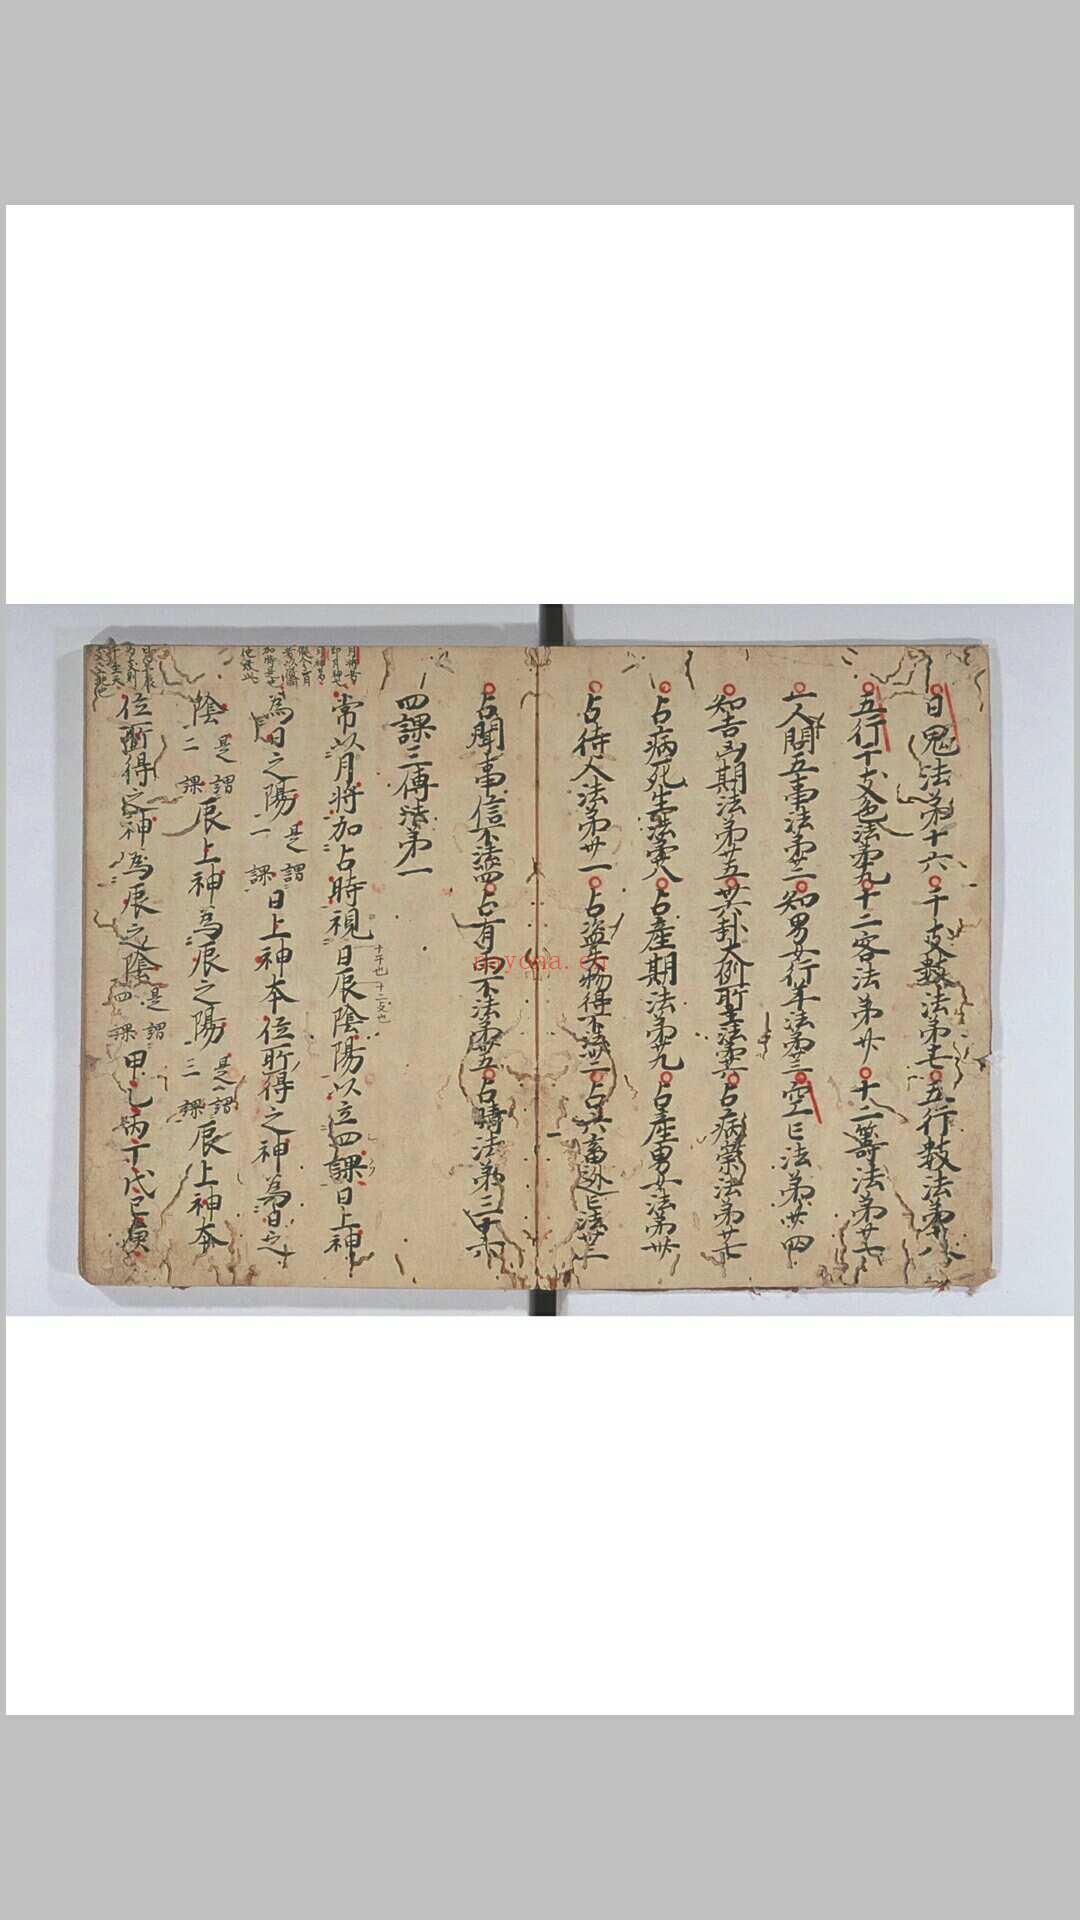 日鬼法第十六 干支数法第十七 五行数法第十八
五行干支色法第十九 十二客法第廿 十二籌法第廿一
一人問五事法第廿二 知男女行年法第廿三 空亡法第廿四
知吉凶期法第廿五 卅六卦大例所主法第廿六 占病祟法第廿七
占病死生法第廿八 占產期法第廿九 占產男女法第卅
占待人法第卅一 占盜失物得不法卅二 占六畜逃亡法卅三
占聞事信不法卅四 占有雨不法第卅五 占晴法第三十六
四課三傳法第一
常以月將加占時視日辰陰陽以立四課日上神
十干也 十二支也
為日之陽 是謂一課 日上神本位所得之神為日之
陰 是謂二課 辰上神為辰之陽 是謂三課 辰上神本
位所得之神為辰之陰 是謂四課 甲乙丙丁戊己庚
nayona.cn